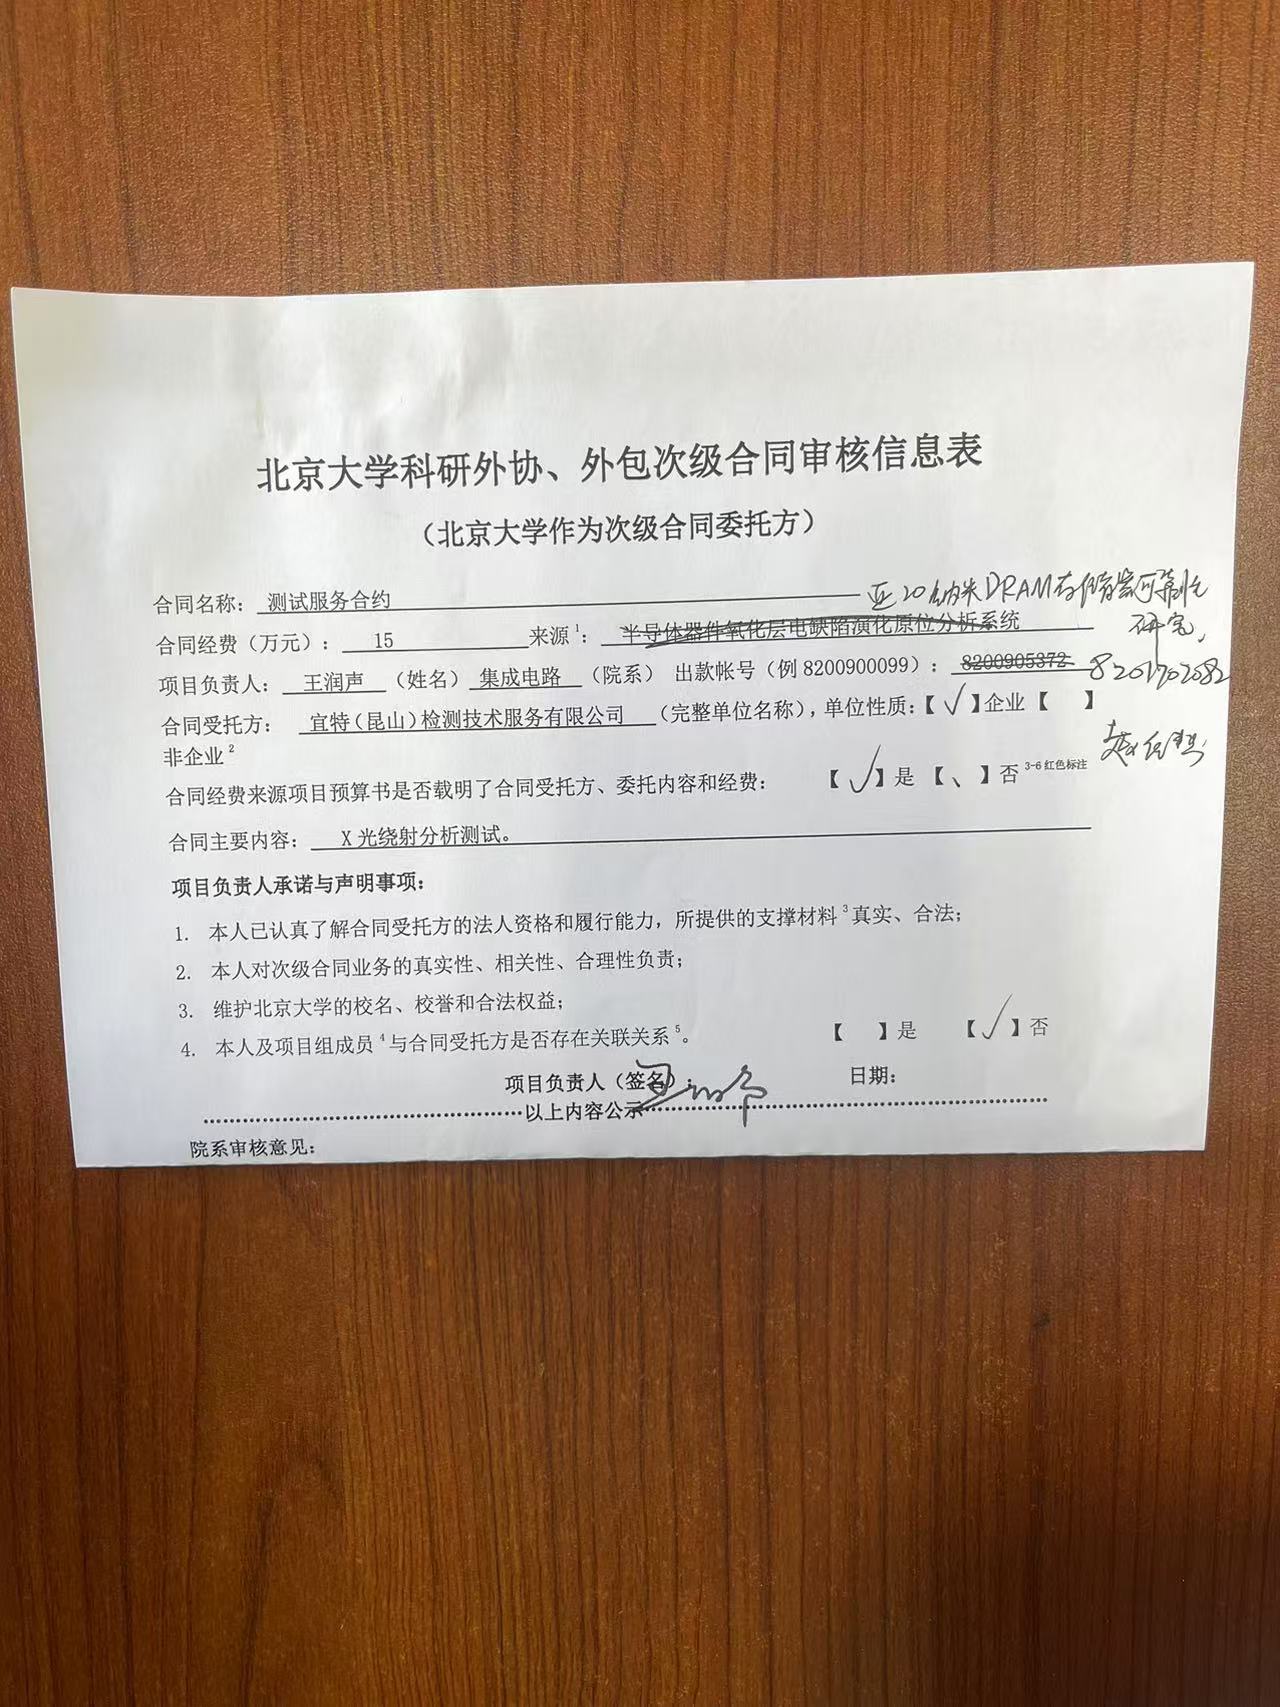 北京大学科研外协、外包次级合同审核信息表
（北京大学作为次级合同委托方）
合同名称： 测试服务合约
亚20纳米DRAM存储器可靠性
研究，
合同经费（万元）： 15 来源1： 半导体器件氧化层电缺陷演化原位分析系统
项目负责人： 王润声 （姓名） 集成电路 （院系） 出款帐号（例 8200900099）： 8200905372
8201702082
合同受托方： 宜特(昆山)检测技术服务有限公司 （完整单位名称），单位性质：【√】企业【 】
非企业2
合同经费来源项目预算书是否载明了合同受托方、委托内容和经费： 【√】是 【、】否 3-6 红色标注
合同主要内容： X 光绕射分析测试。
项目负责人承诺与声明事项：
1. 本人已认真了解合同受托方的法人资格和履行能力，所提供的支撑材料3真实、合法；
2. 本人对次级合同业务的真实性、相关性、合理性负责；
3. 维护北京大学的校名、校誉和合法权益；
4. 本人及项目组成员4与合同受托方是否存在关联关系5。 【 】是 【√】否
项目负责人（签名）： 日期：
以上内容公示
院系审核意见：